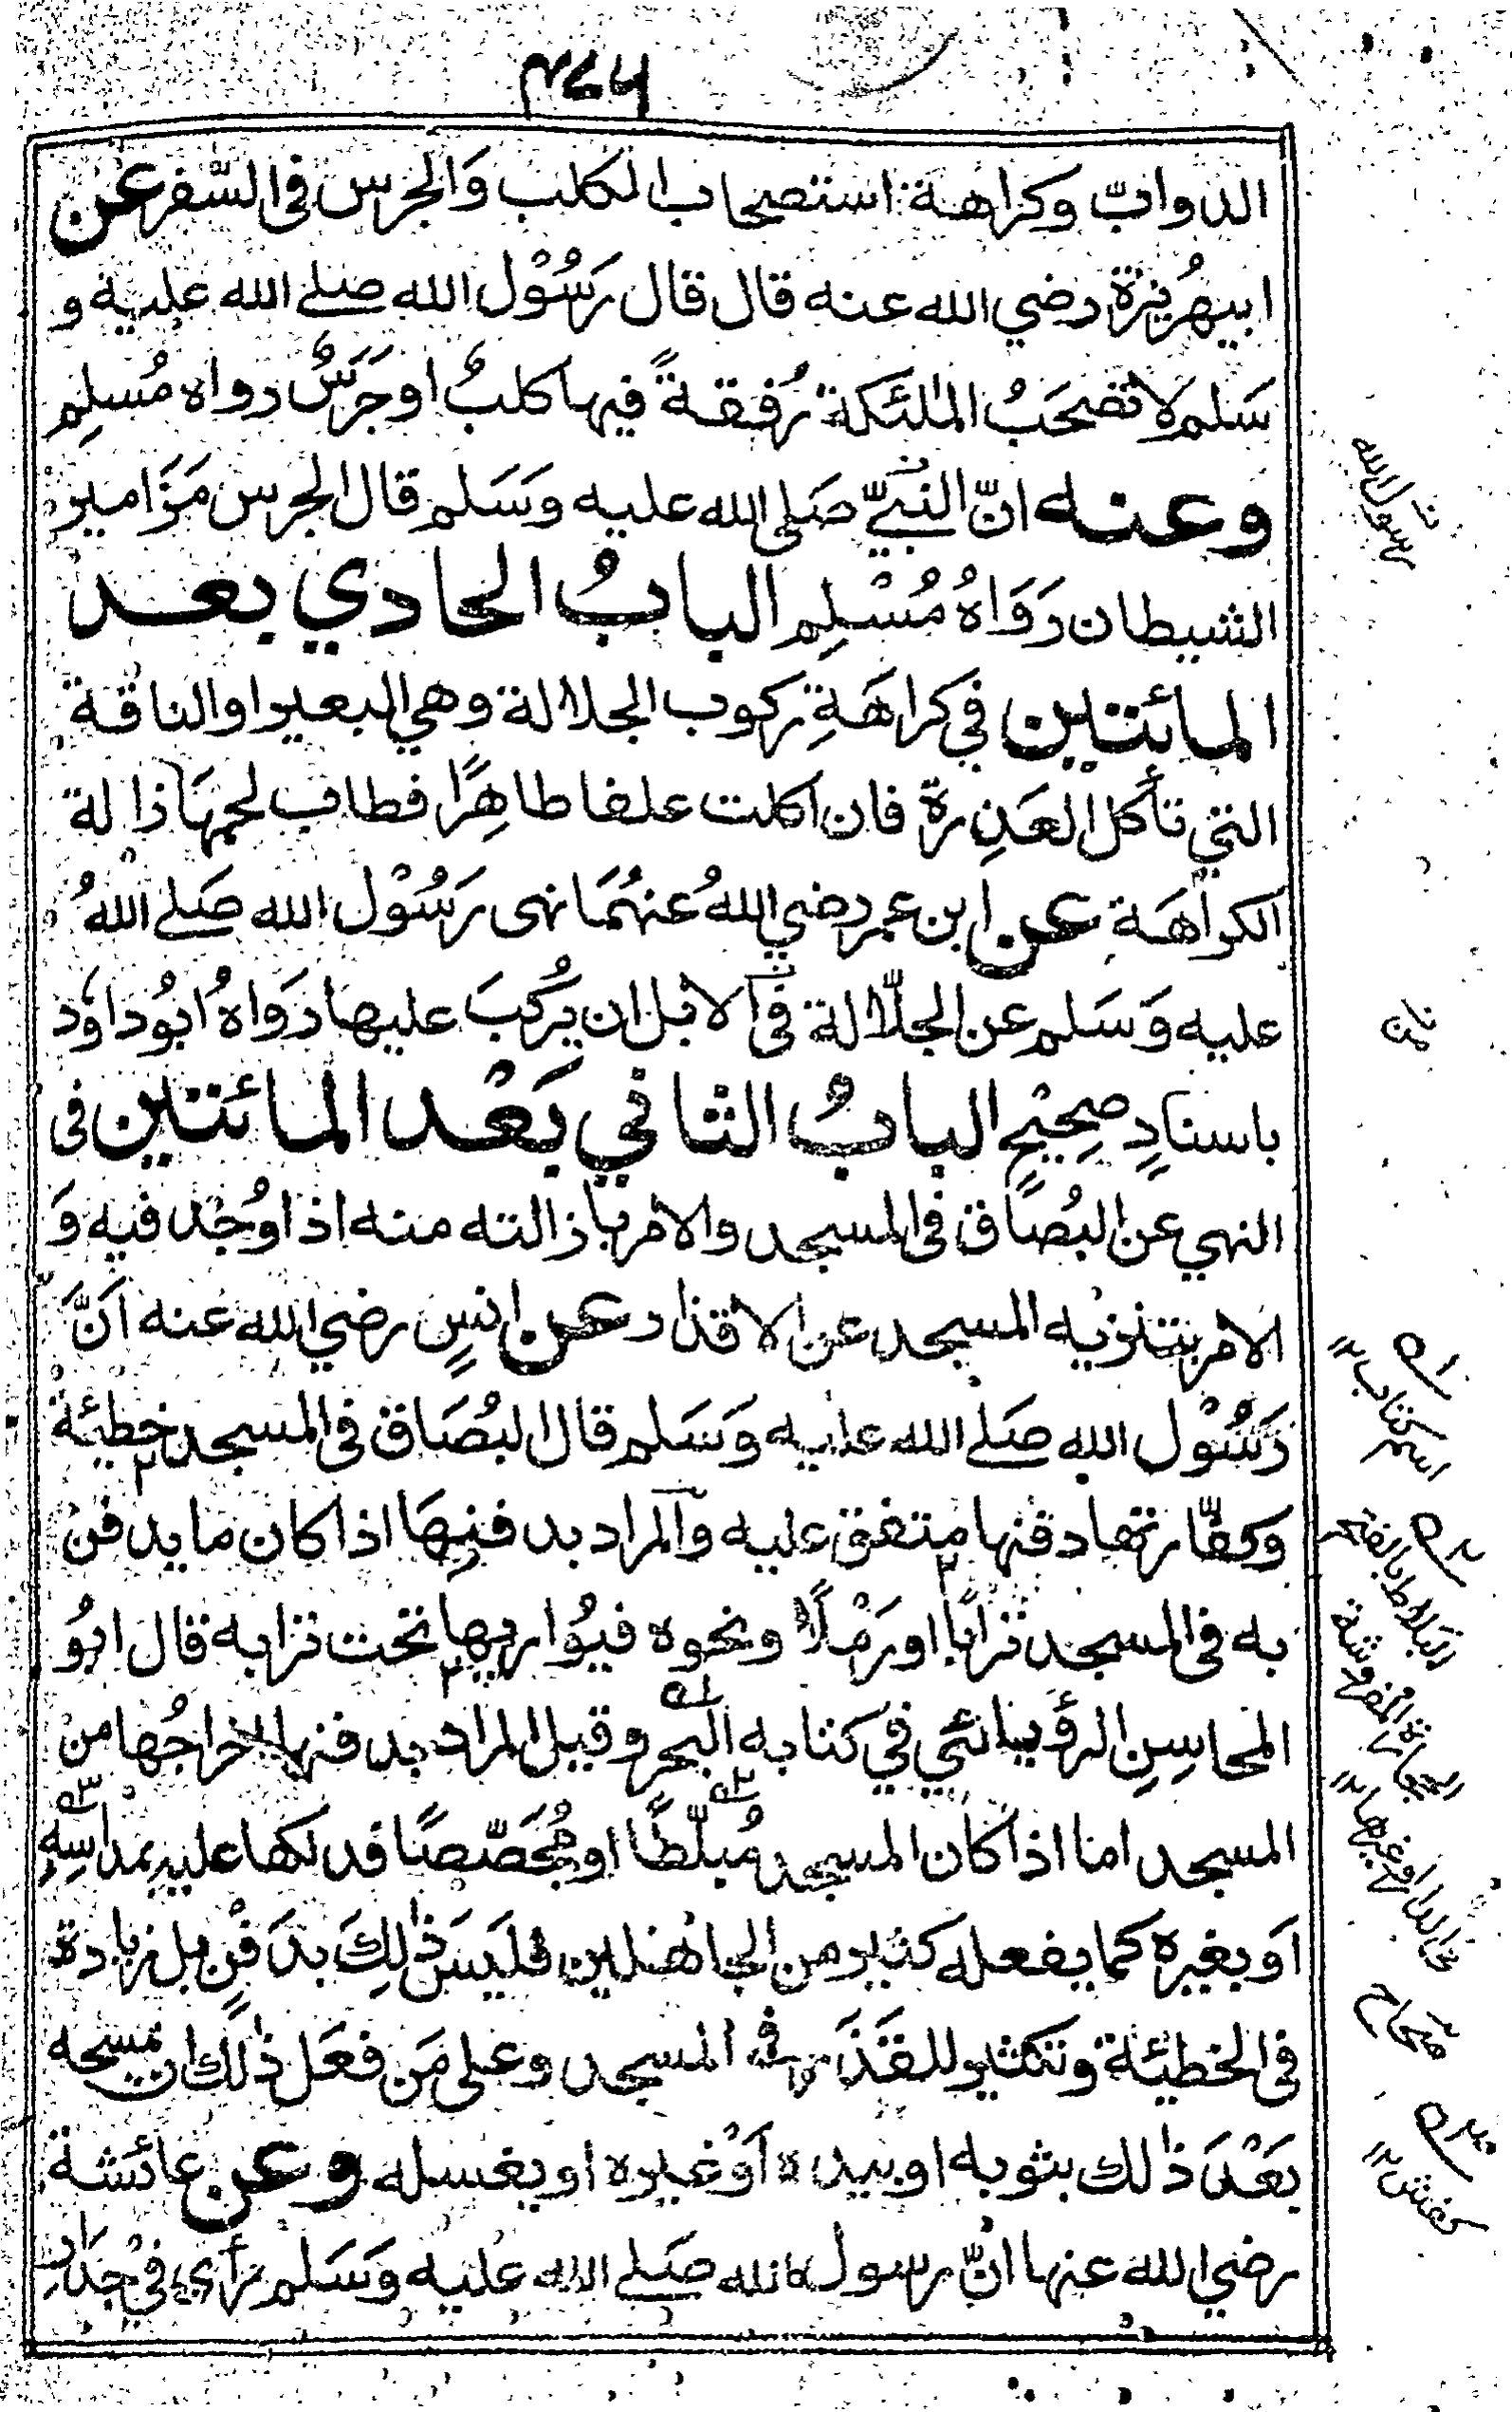 ٣٧٦
الدوابّ وكراهة استصحاب الكلب وَالجرس فى السّفر عن
ابيهُريْرة رضي الله عنه قال قال رَسُوْل الله صلے الله عليه و
سَلم لا تصحَبُ الملٰئكة رُفقةً فيها كلبٌ او جَرَسٌ رواه مُسلِم
وعنه انّ النبيّ صَلى الله عليه وسَلم قال الجرس مَزَامير
الشيطان رَوَاهُ مُسْلِم البابُ الحادي بعد
المائتين في كراهَةِ ركوب الجلالة وهي البعير او الناقة
التي تأكل العَذِرة فان اكلت علفا طاهِرًا فطاب لحمهَا زالة
الكراهَة عن ابن عمر رضي اللهُ عنهُمَا نهى رَسُوْل الله صَلے اللهُ
عليه وَسَلم عن الجلّالة فى الابل ان يُركبَ عليها رَوَاهُ ابُوداوٗد
باسنادٍ صحِيْحٍ البابُ الثاني بَعْد المائتين فى
النهي عن البُصَاق فى المسجد والامر بازالته منه اذا وُجْد فيه وَ
الامر بتنزيه المسجد عن الاقذار عن انسٍ رضي الله عنه اَنَّ
رَسُوْل الله صَلے الله عليه وَسَلم قال البُصَاق فى المسجد خطيئة
وكفّارتها دفنها متفق عليه والمراد بدفنِهَا اذا كان ما يدفن
به فى المسجد ترابًا او رَمْلًا ونحوه فيُواريها تحت ترابه قال ابُو
المحاسِنِ الرؤيانئي في كتابه البحر وقيل المراد بدفنها اخراجُها من
المسجد اما اذا كان المسجد مُبلّطًا او مُجَصّصًا فدلكها عليه بمداسِهٖ
اَو بغيره كما يفعله كثير من الجاهلين فليَسَ ذٰلِكَ بدَفْنٍ بل زيادة
فى الخطيئة وتكثير للقذَر فى المسجد وعلى مَن فعَل ذٰلك ان يمسحه
بَعْدَ ذٰلك بثوبه او بيده اَوْ غيره او يغسله وعن عائشة
رضي الله عنها انّ رسول الله صَلے الله عليه وَسَلم رأى في جدَارِ
رسول الله
اسم كتاب ١٢
البَلاط بالفتح
الحجارة المفروشة
في الدار وغيرها ١٢
صحاح
كفش ١٢